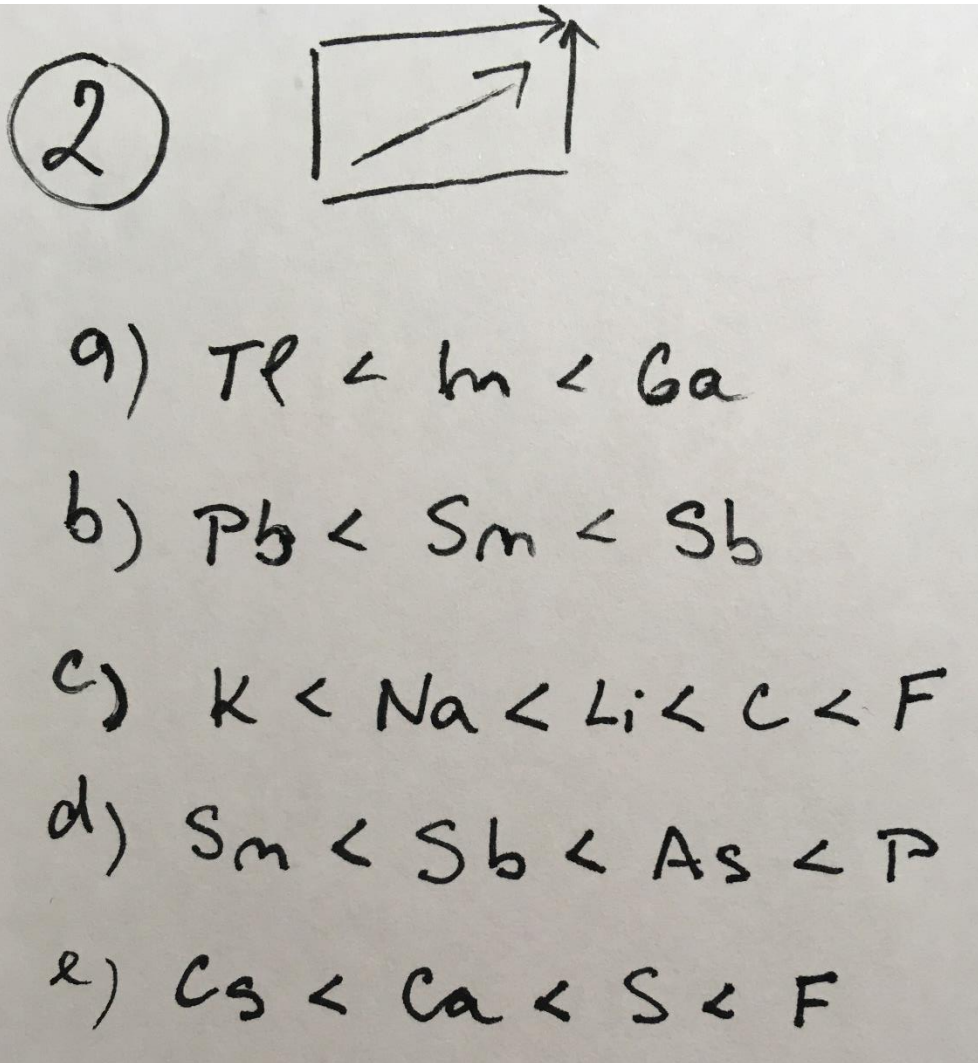 2
a) Tl < In < Ga
b) Pb < Sn < Sb
c) K < Na < Li < C < F
d) Sn < Sb < As < P
e) Cs < Ca < S < F